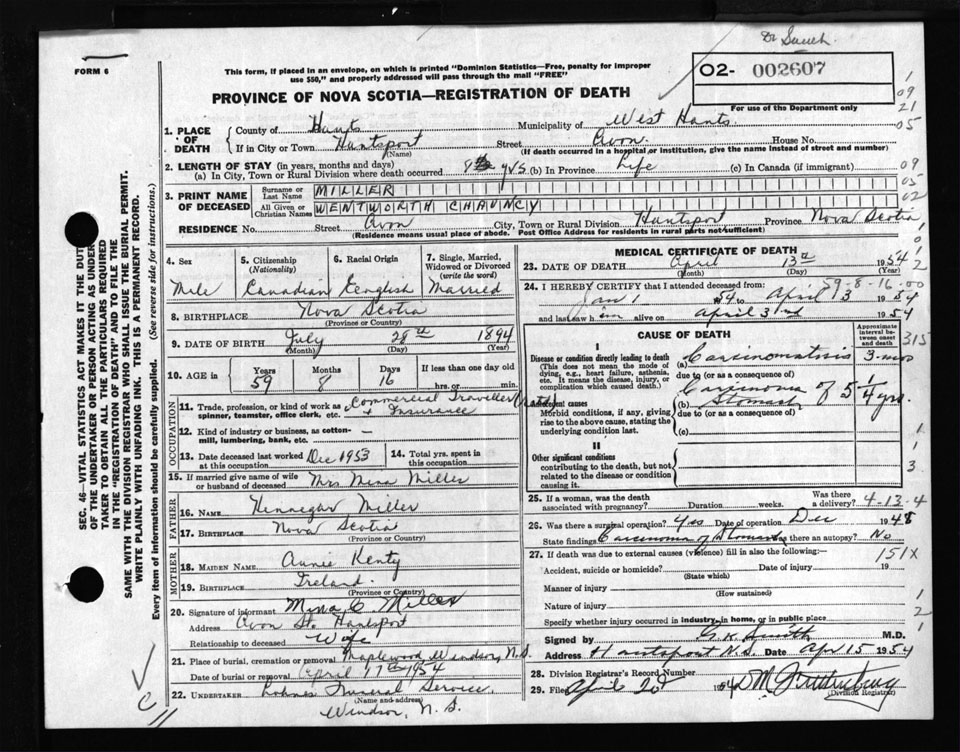 Dr Smith
FORM 6
This form, if placed in an envelope, on which is printed "Dominion Statistics—Free, penalty for improper
use $50," and properly addressed will pass through the mail "FREE"
02- 002607
For use of the Department only
PROVINCE OF NOVA SCOTIA—REGISTRATION OF DEATH
1
09
21
05
1. PLACE OF DEATH
County of Hants Municipality of West Hants
If in City or Town Hantsport Street Avon House No.
(Name) (If death occurred in a hospital or institution, give the name instead of street and number)
2. LENGTH OF STAY (in years, months and days)
(a) In City, Town or Rural Division where death occurred 8 yrs (b) In Province Life (c) In Canada (if immigrant)
09
05
02
3. PRINT NAME OF DECEASED
Surname or Last Name MILLER
All Given or Christian Names WENTWORTH CHAUNCY
RESIDENCE No. Street Avon City, Town or Rural Division Hantsport Province Nova Scotia
(Residence means usual place of abode. Post Office Address for residents in rural parts not sufficient)
4. Sex
Male
5. Citizenship
(Nationality)
Canadian
6. Racial Origin
English
7. Single, Married,
Widowed or Divorced
(write the word)
Married
8. BIRTHPLACE Nova Scotia
(Province or Country)
9. DATE OF BIRTH July 28th 1894
(Month) (Day) (Year)
10. AGE in
Years Months Days If less than one day old
59 8 16 hrs. or min.
OCCUPATION
11. Trade, profession, or kind of work as Commercial Traveller (retd)
spinner, teamster, office clerk, etc. + Insurance
12. Kind of industry or business, as cotton-
mill, lumbering, bank, etc.
13. Date deceased last worked Dec 1953
at this occupation
14. Total yrs. spent in
this occupation
15. If married give name of wife
or husband of deceased Mrs Mina Miller
FATHER
16. NAME Hennegar Miller
17. BIRTHPLACE Nova Scotia
(Province or Country)
MOTHER
18. MAIDEN NAME Annie Kenty
19. BIRTHPLACE Ireland
(Province or Country)
20. Signature of informant Mina C. Miller
Address Avon St. Hantsport
Relationship to deceased Wife
21. Place of burial, cremation or removal Maplewood, Windsor, N.S.
Date of burial or removal April 17th 1954
(Name and address)
22. UNDERTAKER Lohnes Funeral Service
Windsor, N.S.
MEDICAL CERTIFICATE OF DEATH
23. DATE OF DEATH April 13th 1954
(Month) (Day) (Year)
59-8-16-00
24. I HEREBY CERTIFY that I attended deceased from
Jan 1 54 to April 3 1954
and last saw him alive on April 3rd 1954
CAUSE OF DEATH
Approximate
interval be-
tween onset
and death
315
I
Disease or condition directly leading to death
(This does not mean the mode of
dying, e.g., heart failure, asthenia,
etc. It means the disease, injury, or
complication which caused death.)
(a) Carcinomatosis 3-mos
due to (or as a consequence of)
Antecedent causes
Morbid conditions, if any, giving
rise to the above cause, stating the
underlying condition last.
(b) Carcinoma of Stomach 5 1/4 yrs.
due to (or as a consequence of)
(c)
II
Other significant conditions
contributing to the death, but not
related to the disease or condition
causing it.
1
3
25. If a woman, was the death
associated with pregnancy? Duration weeks. Was there
a delivery? 4-13-4
26. Was there a surgical operation? Yes Date of operation Dec 1948
State findings Carcinoma of Stomach Was there an autopsy? No
27. If death was due to external causes (violence) fill in also the following:—
151X
Accident, suicide or homicide? Date of injury 19
(State which)
Manner of injury
(How sustained)
Nature of injury
Specify whether injury occurred in industry, in home, or in public place
1
2
Signed by G. K. Smith M.D.
Address Hantsport N.S. Date Apr 15 1954
28. Division Registrar's Record Number
29. Filed April 20 1954
(Division Registrar)
SEC. 46—VITAL STATISTICS ACT MAKES IT THE DUTY
OF THE UNDERTAKER OR PERSON ACTING AS UNDER-
TAKER TO OBTAIN ALL THE PARTICULARS REQUIRED
IN THE "REGISTRATION OF DEATH" AND TO FILE THE
SAME WITH THE DIVISION REGISTRAR WHO SHALL ISSUE THE BURIAL PERMIT.
WRITE PLAINLY WITH UNFADING INK. THIS IS A PERMANENT RECORD.
Every item of information should be carefully supplied. (See reverse side for instructions.)